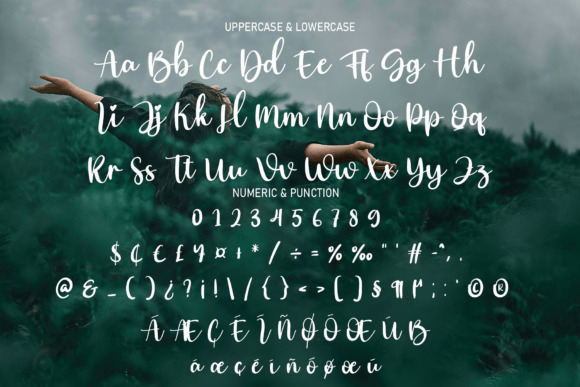 UPPERCASE & LOWERCASE
Aa Bb Cc Dd Ee Ff Gg Hh
Ii Jj Kk Ll Mm Nn Oo Pp Qq
Rr Ss Tt Uu Vv Ww Xx Yy Zz
NUMERIC & PUNCTION
0 1 2 3 4 5 6 7 8 9
$ ₵ € £ ¥ ¤ + * / ÷ = % ‰ " ' # - ^ , .
@ & _ ( ) ¿ ? ¡ ! \ / { } < > [ ] § ¶ ; : ' © ®
Á Æ Ç É Í Ñ Ø Ó Œ Ú ß
á æ ç é í ñ ó ø œ ú